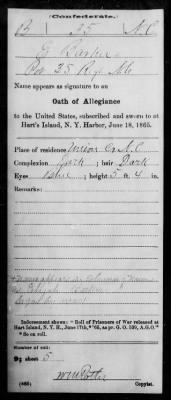 (Confederate.)
B 35 N.C.
E Barker
Pvt 35 Reg N.C.
Name appears as signature to an
Oath of Allegiance
to the United States, subscribed and sworn to at
Hart's Island, N. Y. Harbor, June 18, 1865.
Place of residence Union Co N.C.
Complexion Dark ; hair Dark
Eyes Blue ; height 5 ft. 4 in.
Remarks:
Name appears in
Indorsement shows: "Roll of Prisoners of War released at
Hart Island, N. Y. R., June 17th, '65, as pr. G. O. 109, A.G.O."
* So on roll.
Number of roll:
sheet 5
(665)
Copyist.